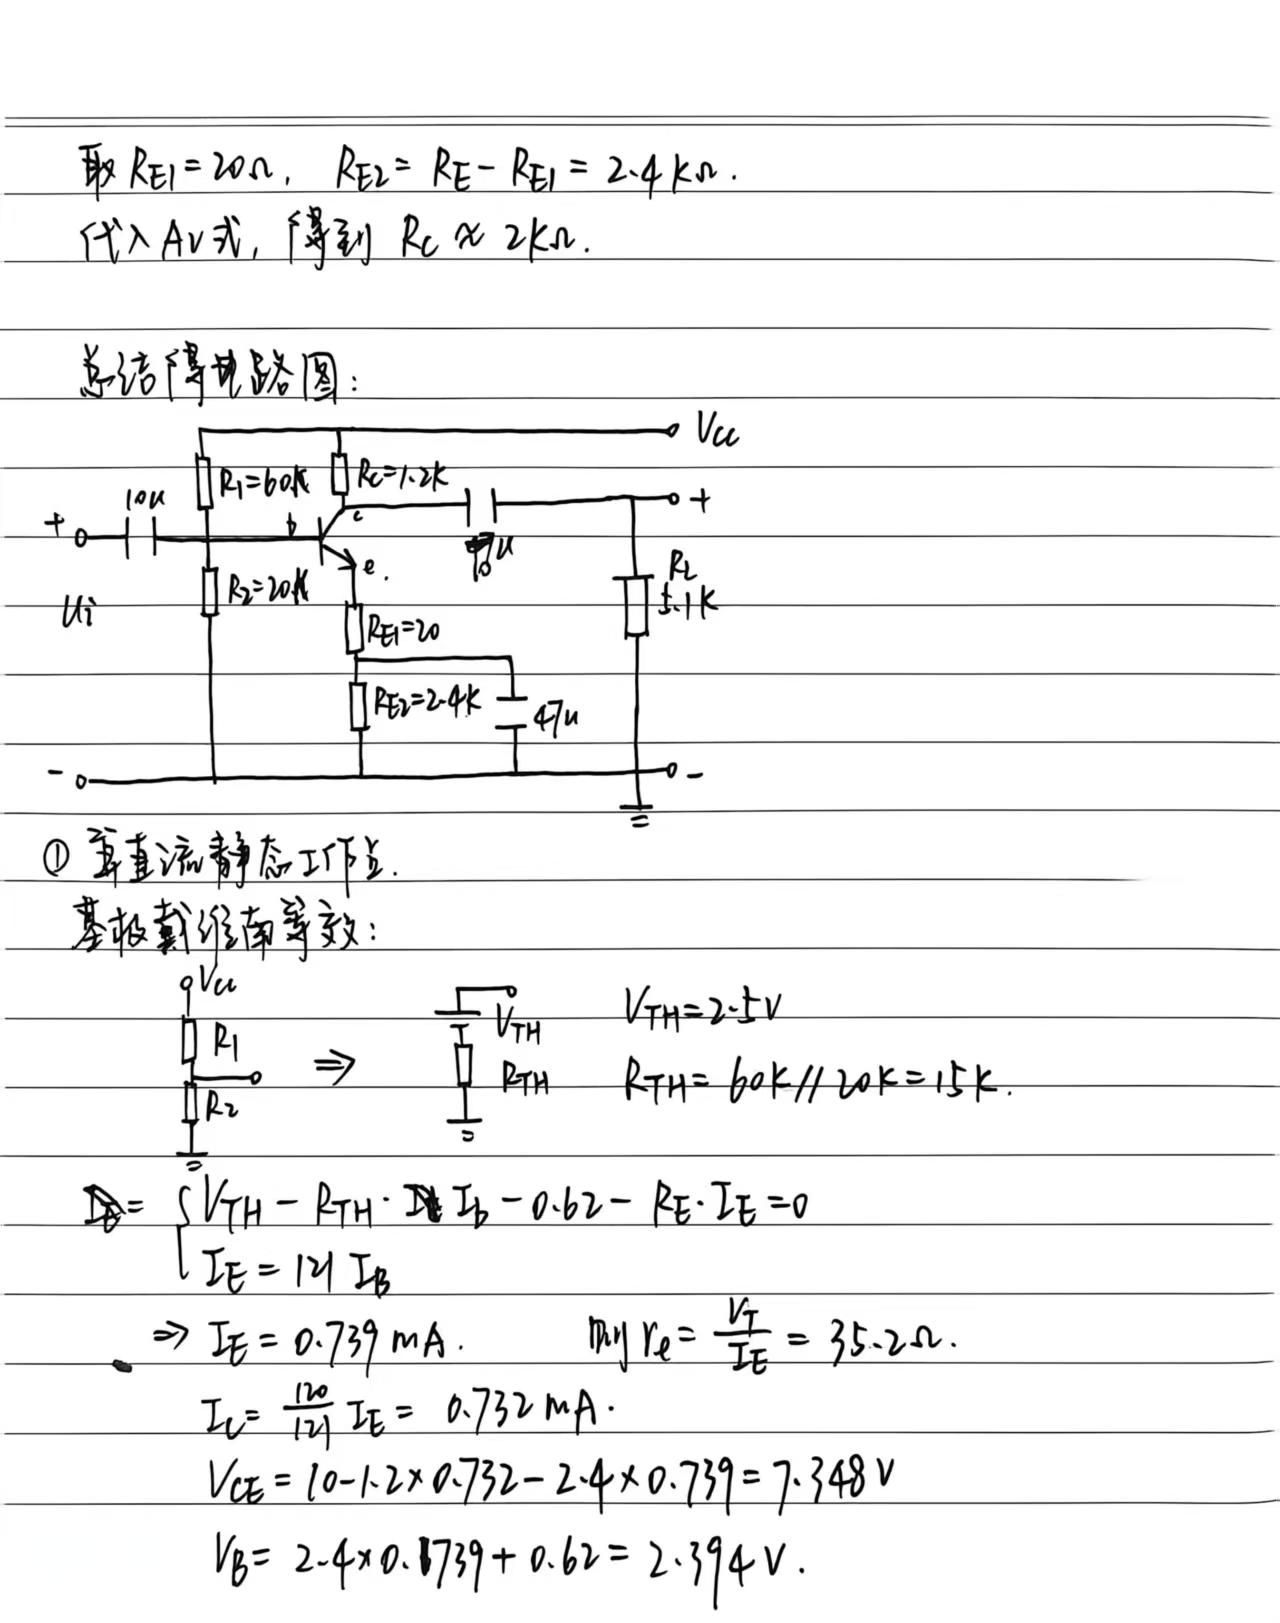 取 RE1=20Ω, RE2=RE-RE1=2.4KΩ.
代入 AV式, 得到 RC≈2KΩ.
总结得电路图:
VCC
R1=60K RC=1.2K
10u + b c +
e. u RL
R2=20K 5.1K
Ui
RE1=20
RE2=2.4K 47u
- -
① 算直流静态工作点.
基极戴维南等效:
VCC
R1 ⇒ VTH VTH=2.5V
R2 RTH RTH=60K//20K=15K.
= { VTH-RTH· Ib-0.62-RE·IE=0
IE=121 IB
⇒ IE=0.739mA. 则 re=VT/IE=35.2Ω.
IC=120/121 IE=0.732mA.
VCE=10-1.2×0.732-2.4×0.739=7.348V
VB=2.4×0.739+0.62=2.394V.